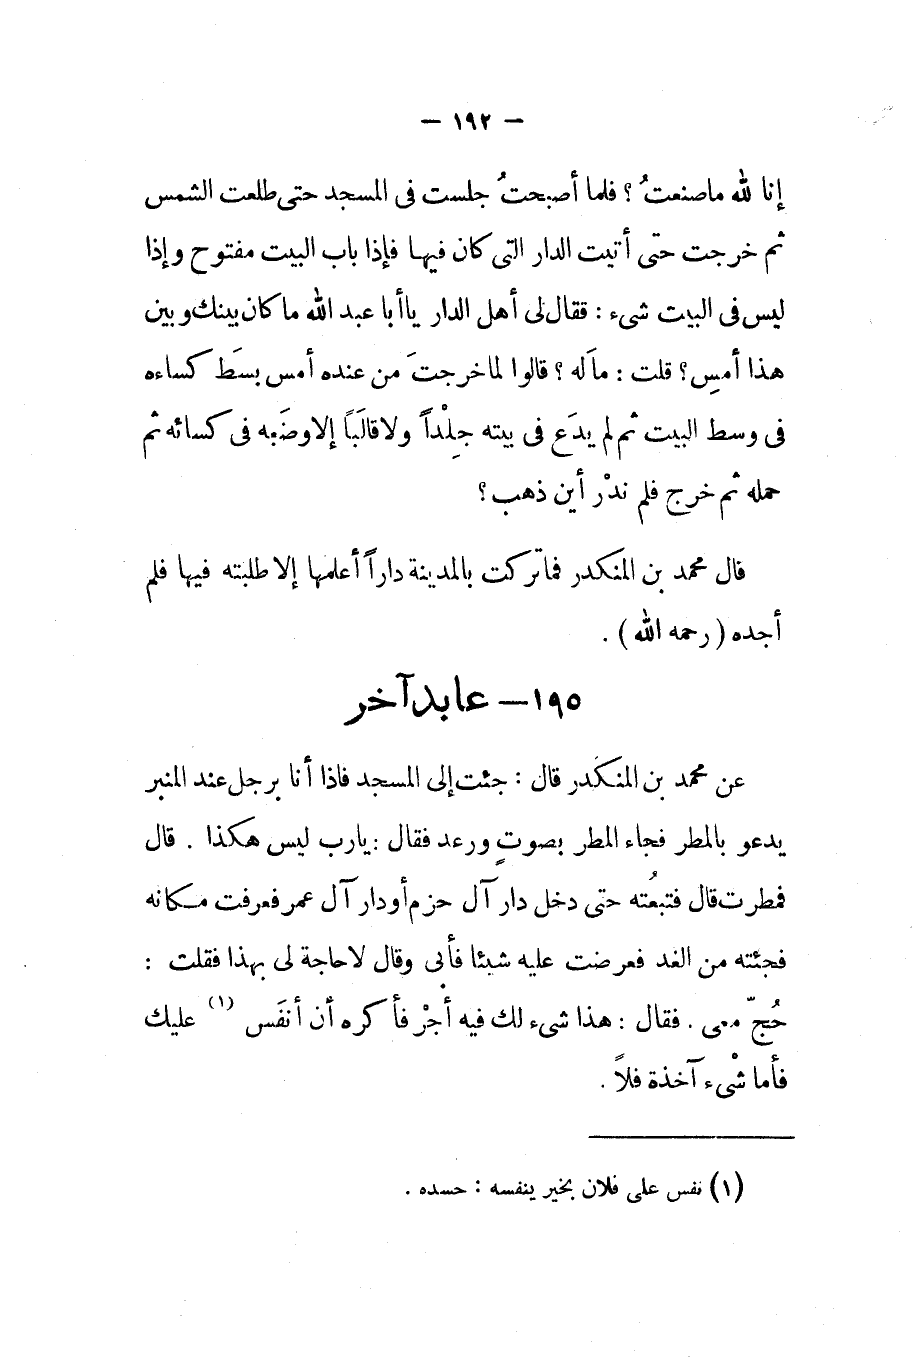 — ١٩٢ —
إنا لله ماصنعتُ ؟ فلما أصبحتُ جلست فى المسجد حتى طلعت الشمس
ثم خرجت حتّى أتيت الدار التى كان فيها فإذا باب البيت مفتوح وإذا
ليس فى البيت شىء : فقال لى أهل الدار ياأبا عبد الله ما كان بينك وبين
هذا أمسِ؟ قلت : مالَه ؟ قالوا لما خرجتَ من عنده أمس بسَط كساءه
فى وسط البيت ثم لم يدَع فى بيته جِلْداً ولا قالَباً إلا وضَعه فى كسائه ثم
حمله ثم خرج فلم ندْر أين ذهب ؟
قال محمد بن المنكدر فما تركت بالمدينة داراً أعلمها إلا طلبته فيها فلم
أجده ( رحمه الله ) .
١٩٥ — عابد آخر
عن محمد بن المنكَدر قال : جئت إلى المسجد فاذا أنا برجل عند المنبر
يدعو بالمطر فجاء المطر بصوتٍ ورعد فقال : يارب ليس هكذا . قال
فمطرت قال فتبعُته حتى دخل دار آل حزم أو دار آل عمر فعرفت مكانه
فجئته من الغد فعرضت عليه شيئا فأبى وقال لا حاجة لى بهذا فقلت :
حُجّ معى . فقال : هذا شىء لك فيه أجْر فأكره أن أنفَس (١) عليك
فأما شْىء آخذة فلاً .
(١) نفس على فلان بخير ينفسه : حسده .